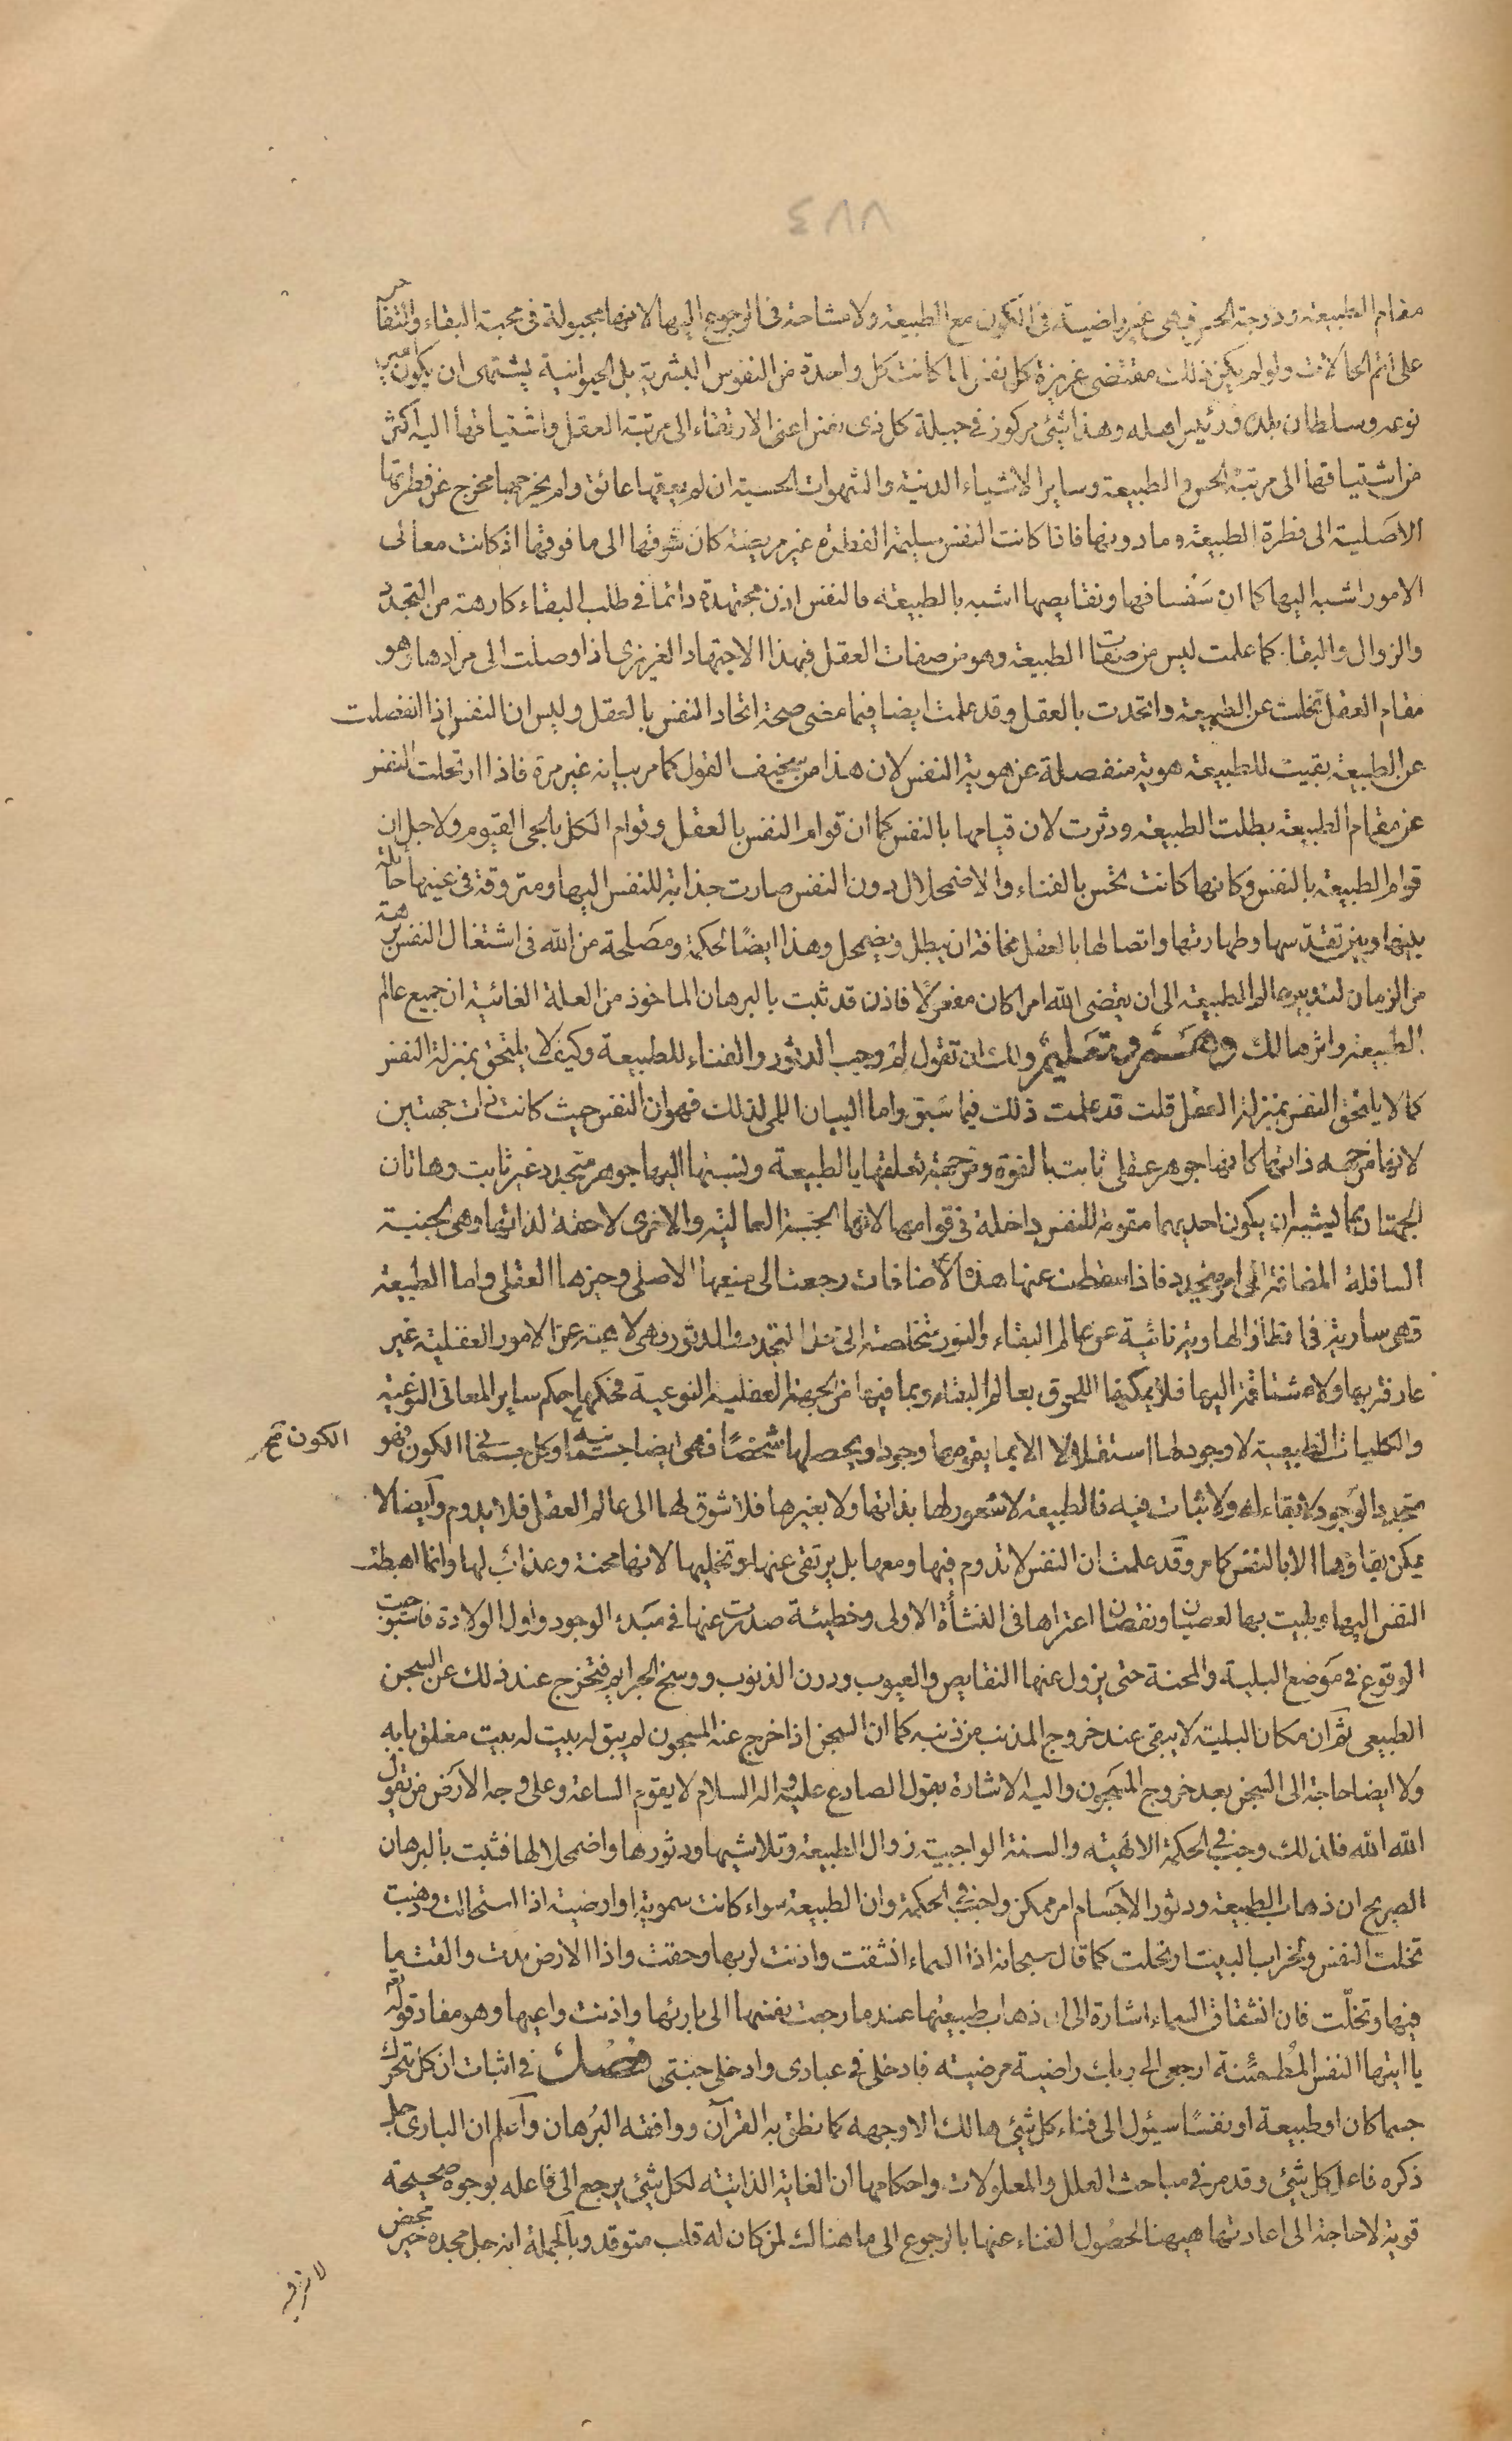 ٤٨٨
مقام الطبيعة ودرجة الحس فهى غير راضية فى الكون مع الطبيعة ولا مشاحة فى الرجوع اليها لانها مجبولة فى محبة البقاء والثقا
على اتم الحالات ولو لم يكن ذلك مقتضى غريزة كل نفس لما كانت كل واحدة من النفوس البشرية بل الحيوانية يشتهى ان يكون
نوعه وسلطان بلده ورئيس اهله وهذا شئ مركوز فى جبلة كل ذى نفس اعنى الارتقاء الى مرتبة العقل واشتياقها اليه اكثر
من اشتياقها الى مرتبة الحس والطبيعة وساير الاشياء الدنية والشهوات الحسية ان لم يعقها عائق ولم يخرجها مخرج عن فطرتها
الاصلية الى فطرة الطبيعة وما دونها فاذا كانت النفس سليمة الفطرة غير مريضة كان شوقها الى ما فوقها اذ كانت معالى
الامور اشبه اليها كما ان سفسافها ونقايصها اشبه بالطبيعة فالنفس اذن مجتهدة دائما فى طلب البقاء كارهة من التجدد
والزوال والبقاء كما علمت ليس من صفات الطبيعة وهو من صفات العقل فبهذا الاجتهاد الغريزى اذا وصلت الى مرادها وهو
مقام العقل تخلت عن الطبيعة واتحدت بالعقل وقد علمت ايضا فيما مضى صحة اتحاد النفس بالعقل وليس ان النفس اذا انفصلت
عن الطبيعة بقيت للطبيعة هوية منفصلة عن هوية النفس لان هذا من سخيف القول كما مر بيانه غير مرة فاذا ارتحلت النفس
عن مقام الطبيعة بطلت الطبيعة ودثرت لان قيامها بالنفس كما ان قوام النفس بالعقل وقوام الكل بالحى القيوم ولاجل ان
قوام الطبيعة بالنفس وكانها كانت تحس بالفناء والاضمحلال دون النفس صارت جذابة للنفس اليها ومتروقة فى عينها حائلة
بينها وبين تقدسها وطهارتها واتصالها بالعقل مخافة ان يبطل ويضمحل وهذا ايضًا لحكمة ومصلحة من الله فى اشتغال النفس برهة
من الزمان لتدبيرها الطبيعة الى ان يقضى الله امرا كان مفعولًا فاذن قد ثبت بالبرهان الماخوذ من العلة الغائية ان جميع عالم
الطبيعة واثرها هالك وهم وتعليم ولك ان تقول لم وجب الدثور والفناء للطبيعة وكيف لا يلتحق بمنزلة النفس
كما لا يلتحق النفس بمنزلة العقل قلت قد علمت ذلك فيما سبق واما البيان اللمى لذلك فهو ان النفس حيث كانت ذات جهتين
لانها من جهة ذاتها كانها جوهر عقلى ثابت بالقوة ومن جهة تعلقها بالطبيعة ونسبتها اليها جوهر متجدد غير ثابت وهاتان
الجهتان بما ليشبه ان يكون احديهما مقومة للنفس داخلة فى قوامها لانها الجنبة العالية والاخرى لاحقة لذاتها وهى الجنبة
السافلة المضافة الى امر متجدد فاذا سقطت عنها هذه الاضافات رجعت الى منبعها الاصلى وحيزها العقلى واما الطبيعة
فهى سارية فى اقطار الهاوية نائية عن عالم البقاء والنور متخلصة الى التجدد والدثور وهى لاهية عن الامور العقلية غير
عارفة بها ولا مشتاقة اليها فلا يمكنها اللحوق بعالم البقاء وبما فيها من الجهة العقلية النوعية فحكمها حكم ساير المعانى النوعية
والكليات الطبيعية لا وجود لها استقلالا الا بما يقومها وجودا ويحصلها شخصًا فهى ايضا وكل الكون فهو
الكون
متجدد الوجود لا بقاء له ولا ثبات فيه فالطبيعة لا شعور لها بذاتها ولا بغيرها فلا شوق لها الى عالم العقل فلا يدوم وايضا لا
يمكن بقاؤها الا بالنفس كما مر وقد علمت ان النفس لا تدوم فيها ومعها بل يرتقى عنها وتخليها لانها محنة وعذاب لها وانما اهبطت
النفس اليها وبليت بها لعصيان ونقصان اعتراها فى النشأة الاولى وخطيئة صدرت عنها فى مبدء الوجود واول الولادة فاستوجبت
الوقوع فى موضع البلية والمحنة حتى يزول عنها النقايص والعيوب ودرن الذنوب ووسخ الجرايم فتخرج عند ذلك عن السجن
الطبيعى ثم ان مكان البلية لا يبقى عند خروج المذنب من ذنبه كما ان السجن اذا خرج عنه المسجون لم يبق له بيت له بيت مغلق بابه
ولا ايضا حاجة الى السجن بعد خروج المسجون واليه الاشارة بقول الصادع عليه واله السلام لا يقوم الساعة وعلى وجه الارض من يقول
الله الله فلذلك وجب فى الحكمة الالهية والسنة الواجبية زوال الطبيعة وتلاشيها ودثورها واضمحلالها فثبت بالبرهان
الصريح ان ذهاب الطبيعة ودثور الاجسام امر ممكن واجب فى الحكمة وان الطبيعة سواء كانت سموية او ارضية اذا استحالت وذهبت
تخلت النفس ويخراب البيت ارتحلت كما قال سبحانه اذا السماء انشقت واذنت لربها وحقت واذا الارض مدت والقت ما
فيها وتخلّت فان انشقاق السماء اشارة الى ذهاب طبيعتها عند ما رجعت نفسها الى بارئها واذنت داعيها وهو مفاد قوله تعم
يا ايتها النفس المطمئنة ارجعى الى ربك راضية مرضية فادخلى فى عبادى وادخلى جنتى فصل فى اثبات ان كل متحرك
جسما كان او طبيعة او نفسًا سيئول الى فناء كل شئ هالك الا وجهه كما نطق به القرآن ووافقه البرهان واعلم ان البارى جل
ذكره فاعل كل شئ وقد مر فى مباحث العلل والمعلولات واحكامها ان الغاية الذاتية لكل شئ يرجع الى فاعله بوجوه صحيحة
قوية لا حاجة الى اعادتها هيهنا لحصول الغناء عنها بالرجوع الى ما هنالك لمن كان له قلب متوقد وبالجملة انه جل مجده خير محض